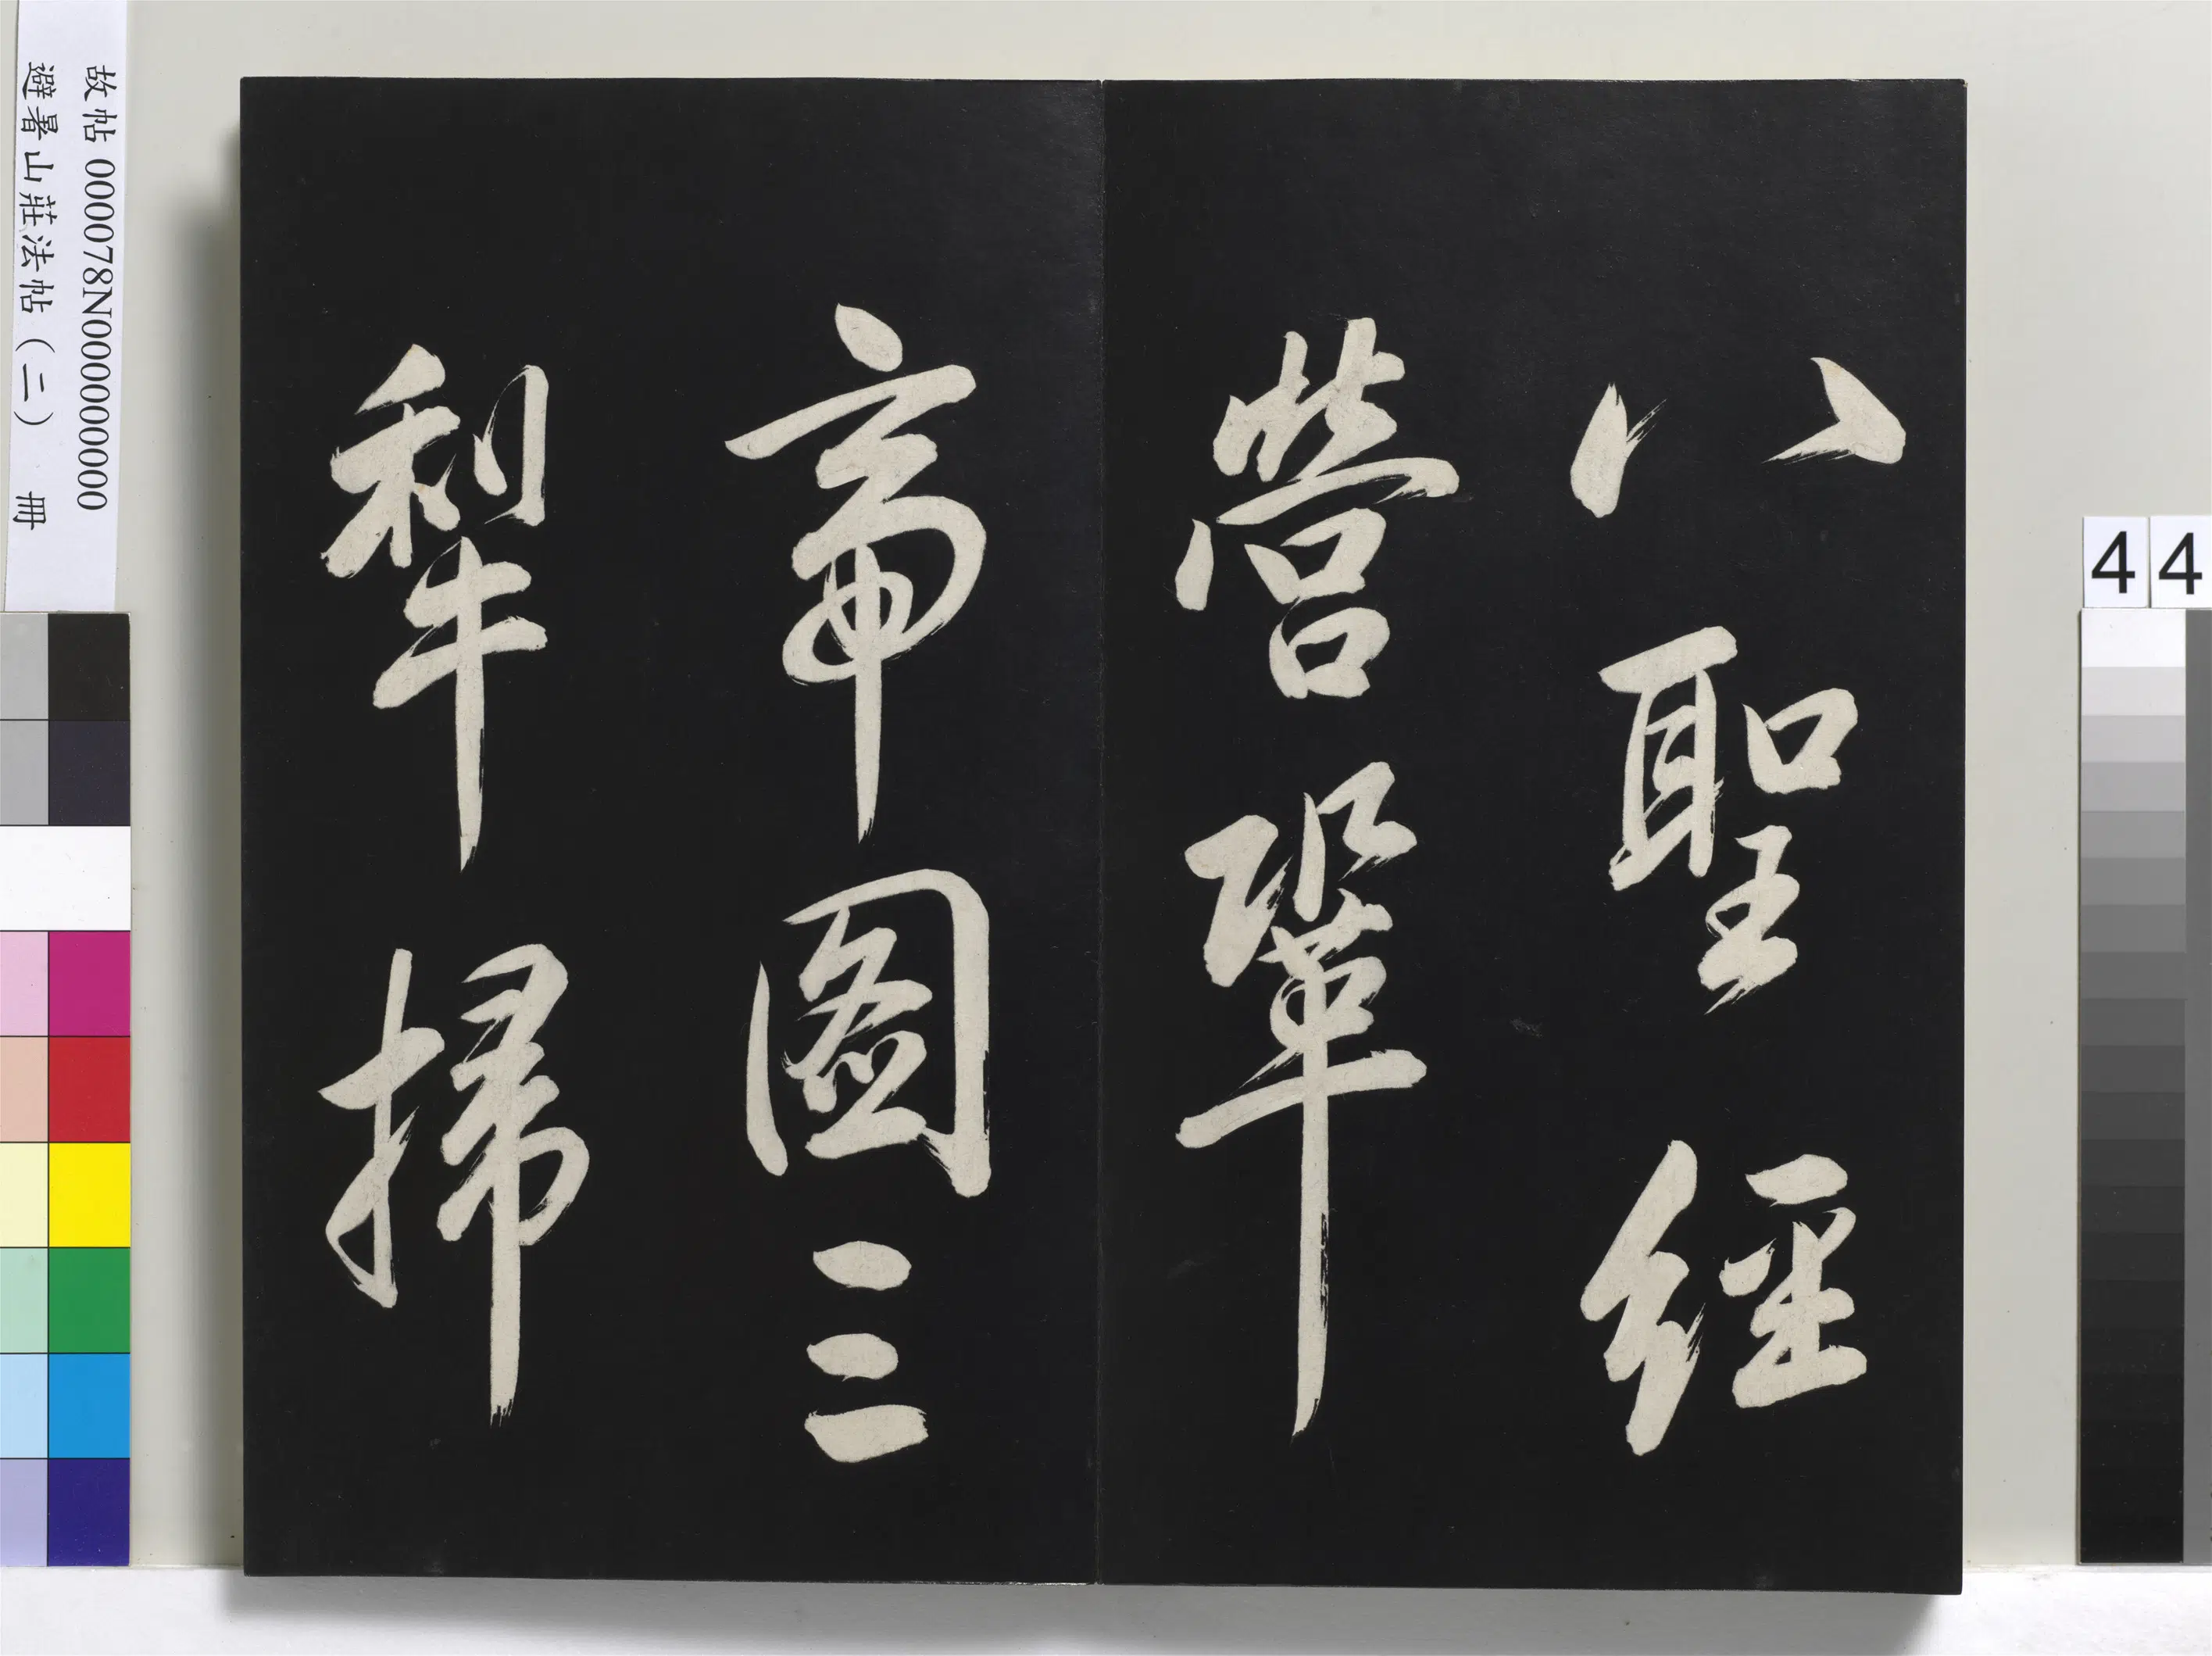 八聖經
營鞏
帝圖三
犁掃
故帖 000078N000000000
避暑山莊法帖（二） 冊
44